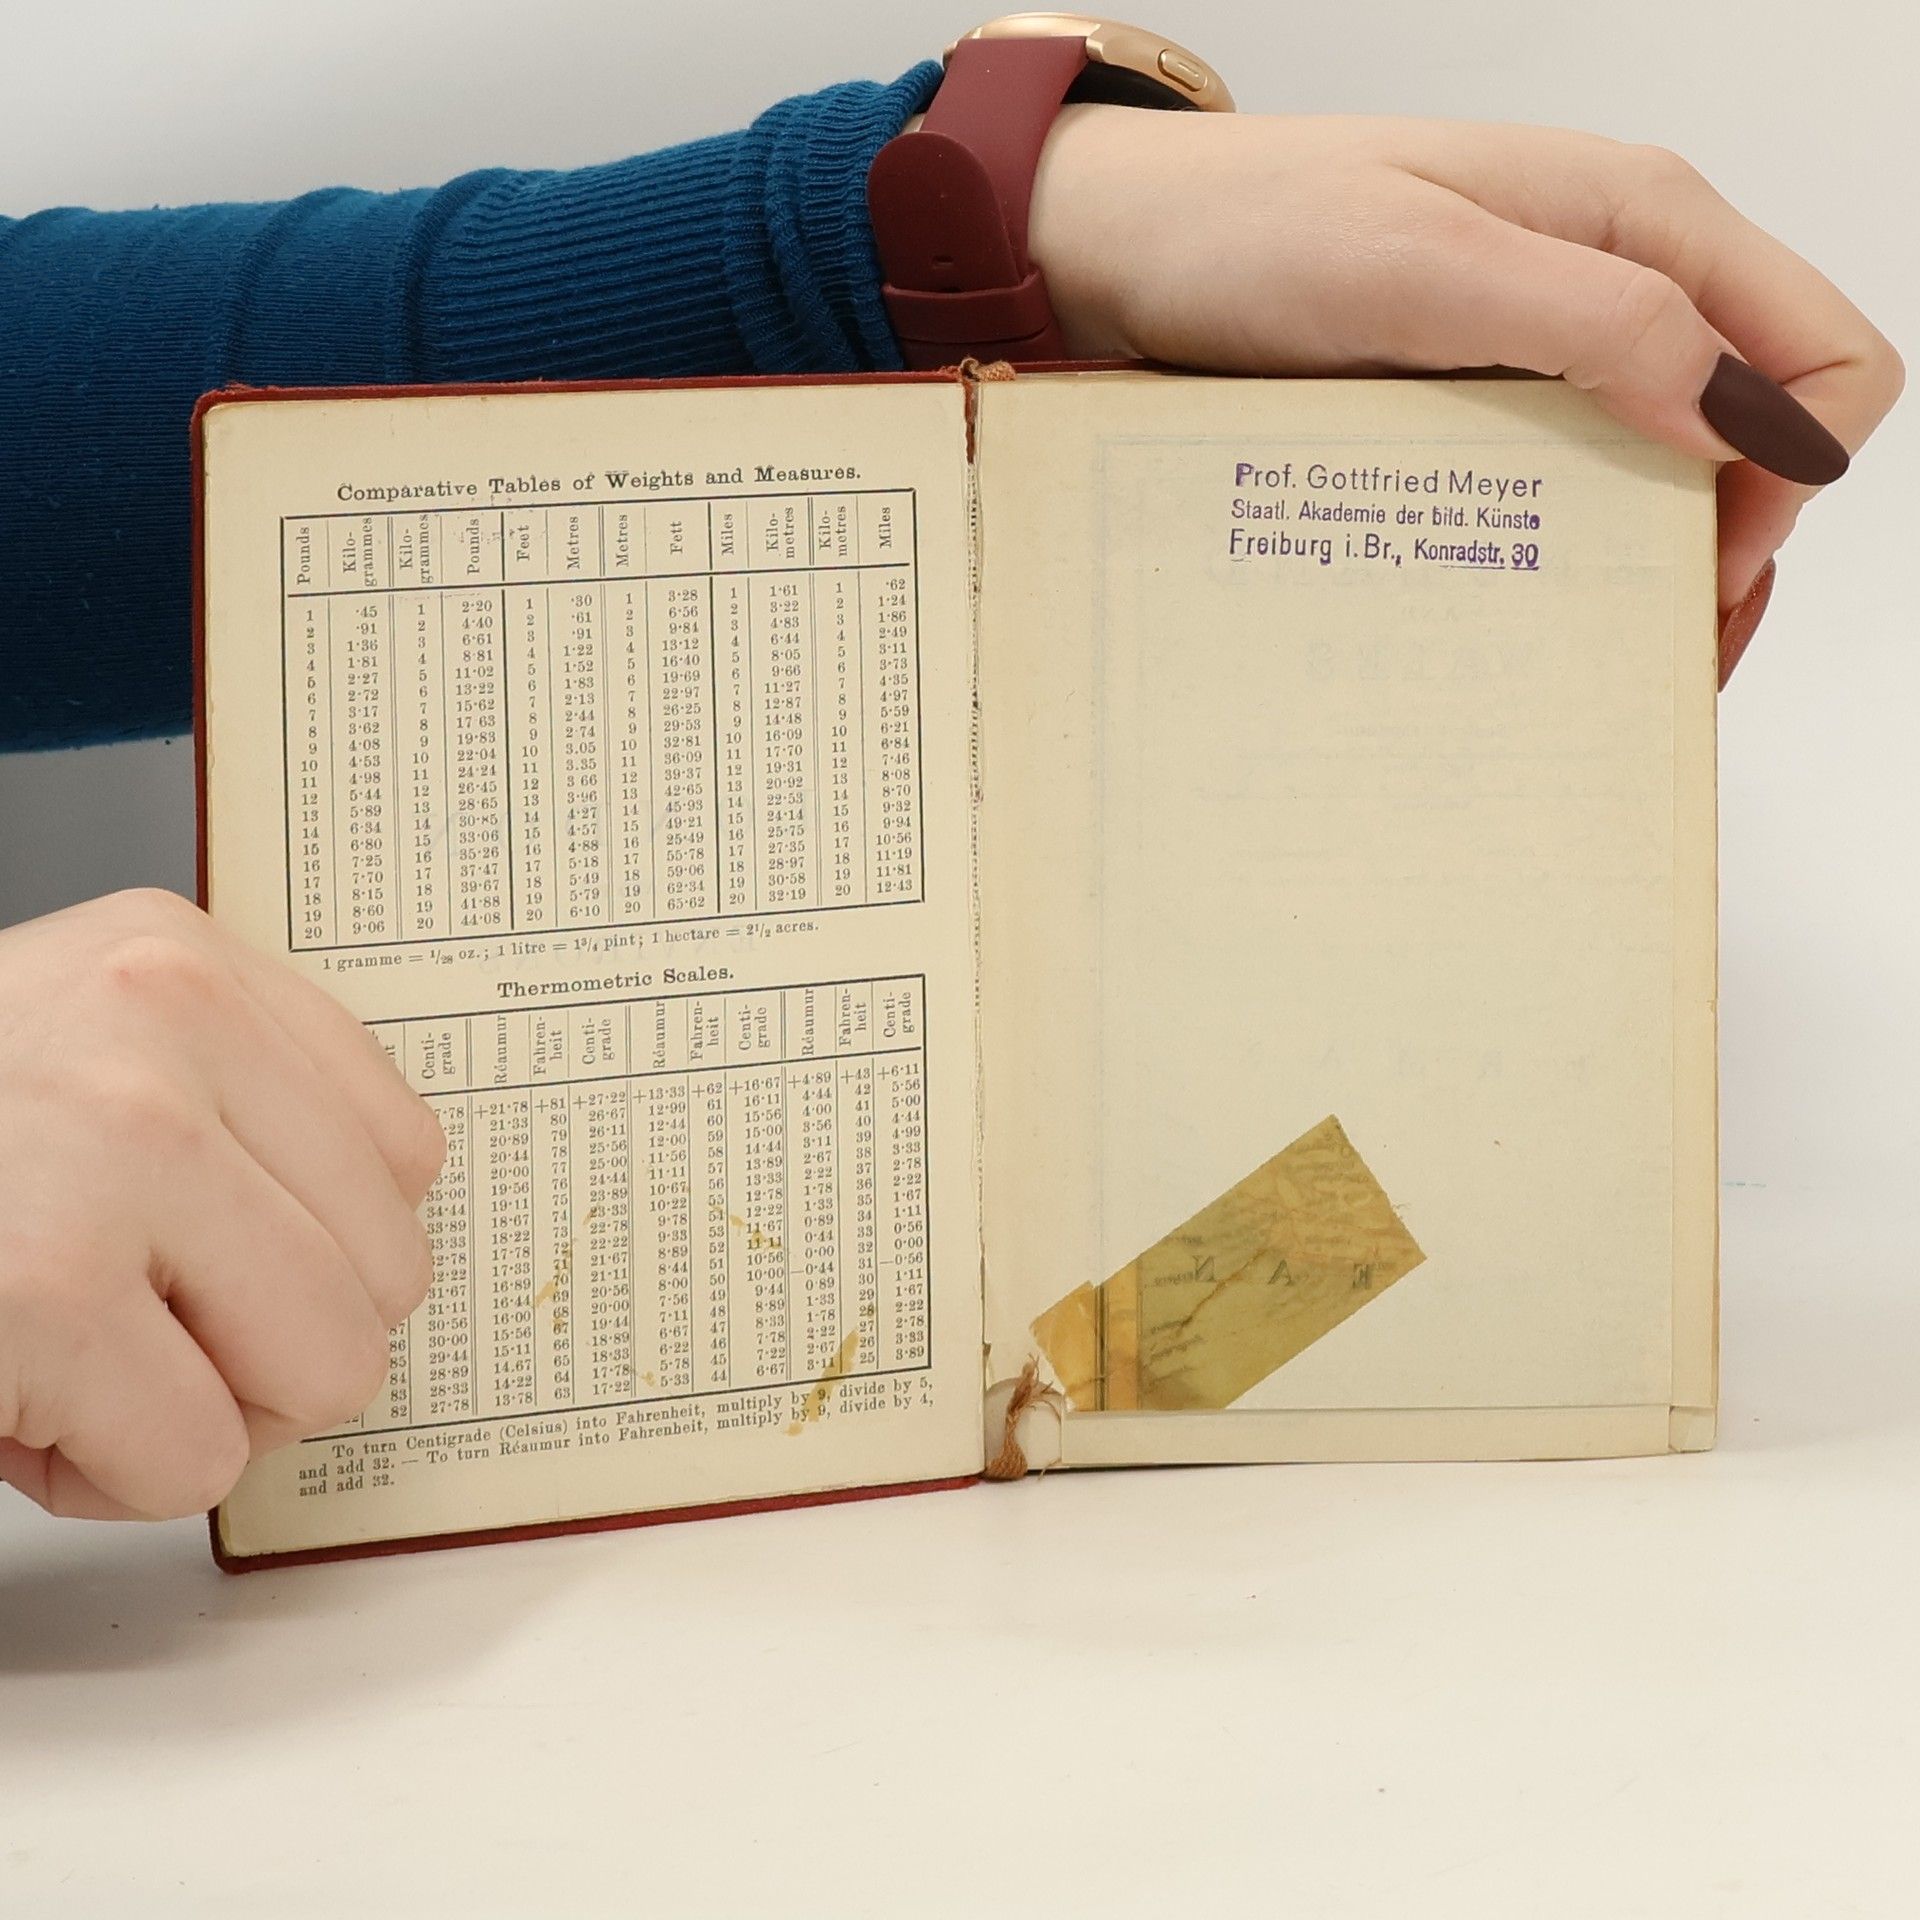 Comparative Tables of Weights and Measures.
Pounds Kilo-grammes Kilo-grammes Pounds Feet Metres Metres Fett Miles Kilo-metres Kilo-metres Miles
1 ·45 1 2·20 1 ·30 1 3·28 1 1·61 1 ·62
2 ·91 2 4·40 2 ·61 2 6·56 2 3·22 2 1·24
3 1·36 3 6·61 3 ·91 3 9·84 3 4·83 3 1·86
4 1·81 4 8·81 4 1·22 4 13·12 4 6·44 4 2·49
5 2·27 5 11·02 5 1·52 5 16·40 5 8·05 5 3·11
6 2·72 6 13·22 6 1·83 6 19·69 6 9·66 6 3·73
7 3·17 7 15·62 7 2·13 7 22·97 7 11·27 7 4·35
8 3·62 8 17 63 8 2·44 8 26·25 8 12·87 8 4·97
9 4·08 9 19·83 9 2·74 9 29·53 9 14·48 9 5·59
10 4·53 10 22·04 10 3.05 10 32·81 10 16·09 10 6·21
11 4·98 11 24·24 11 3.35 11 36·09 11 17·70 11 6·84
12 5·44 12 26·45 12 3 66 12 39·37 12 19·31 12 7·46
13 5·89 13 28·65 13 3·96 13 42·65 13 20·92 13 8·08
14 6·34 14 30·85 14 4·27 14 45·93 14 22·53 14 8·70
15 6·80 15 33·06 15 4·57 15 49·21 15 24·14 15 9·32
16 7·25 16 35·26 16 4·88 16 25·49 16 25·75 16 9·94
17 7·70 17 37·47 17 5·18 17 55·78 17 27·35 17 10·56
18 8·15 18 39·67 18 5·49 18 59·06 18 28·97 18 11·19
19 8·60 19 41·88 19 5·79 19 62·34 19 30·58 19 11·81
20 9·06 20 44·08 20 6·10 20 65·62 20 32·19 20 12·43
1 gramme = 1/28 oz.; 1 litre = 1 3/4 pint; 1 hectare = 2 1/2 acres.
Thermometric Scales.
Centi-grade Réaumur Fahren-heit Centi-grade Réaumur Fahren-heit Centi-grade Réaumur Fahren-heit Centi-grade
+21·78 +81 +27·22 +13·33 +62 +16·67 +4·89 +43 +6·11
21·33 80 26·67 12·99 61 16·11 4·44 42 5·56
20·89 79 26·11 12·44 60 15·56 4·00 41 5·00
20·44 78 25·56 12·00 59 15·00 3·56 40 4·44
20·00 77 25·00 11·56 58 14·44 3·11 39 4·99
35·00 19·56 76 24·44 11·11 57 13·89 2·67 38 3·33
34·44 19·11 75 23·89 10·67 56 13·33 2·22 37 2·78
33·89 18·67 74 23·33 10·22 55 12·78 1·78 36 2·22
33·33 18·22 73 22·78 9·78 54 12·22 1·33 35 1·67
32·78 17·78 72 22·22 9·33 53 11·67 0·89 34 1·11
32·22 17·33 71 21·67 8·89 52 11·11 0·44 33 0·56
31·67 16·89 70 21·11 8·44 51 10·56 0·00 32 0·00
31·11 16·44 69 20·56 8·00 50 10·00 —0·44 31 —0·56
87 30·56 16·00 68 20·00 7·56 49 9·44 0·89 30 1·11
86 30·00 15·56 67 19·44 7·11 48 8·89 1·33 29 1·67
85 29·44 15·11 66 18·89 6·67 47 8·33 1·78 28 2·22
84 28·89 14.67 65 18·33 6·22 46 7·78 2·22 27 2·78
83 28·33 14·22 64 17·78 5·78 45 7·22 2·67 26 3·33
82 27·78 13·78 63 17·22 5·33 44 6·67 3·11 25 3·89
To turn Centigrade (Celsius) into Fahrenheit, multiply by 9, divide by 5,
and add 32. — To turn Réaumur into Fahrenheit, multiply by 9, divide by 4,
and add 32.
Prof. Gottfried Meyer
Staatl. Akademie der bild. Künste
Freiburg i. Br., Konradstr. 30